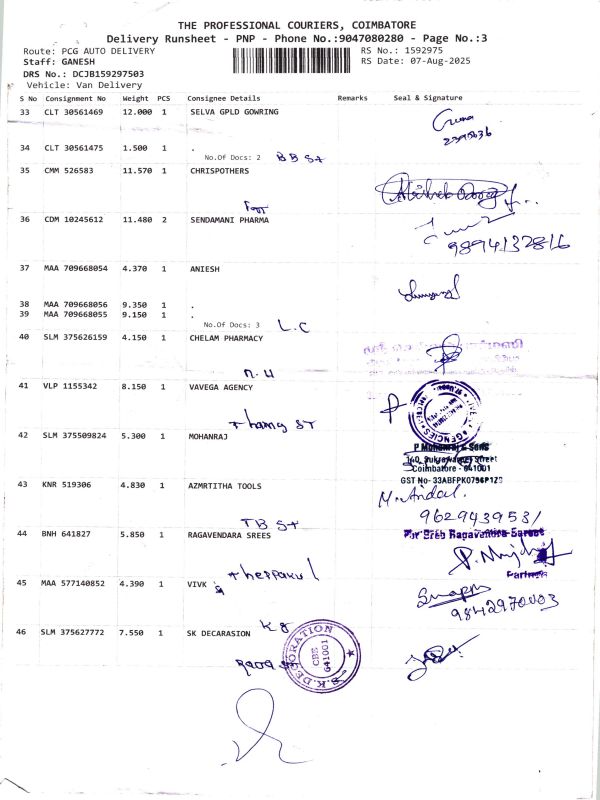 THE PROFESSIONAL COURIERS, COIMBATORE
Delivery Runsheet - PNP - Phone No.:9047080280 - Page No.:3
Route: PCG AUTO DELIVERY
RS No.: 1592975
Staff: GANESH
RS Date: 07-Aug-2025
DRS No.: DCJB159297503
Vehicle: Van Delivery
S No Consignment No Weight PCS Consignee Details Remarks Seal & Signature
33 CLT 30561469 12.000 1 SELVA GPLD GOWRING
34 CLT 30561475 1.500 1 .
No.Of Docs: 2 BB St
35 CMM 526583 11.570 1 CHRISPOTHERS
36 CDM 10245612 11.480 2 SENDAMANI PHARMA
9894132816
37 MAA 709668054 4.370 1 ANIESH
38 MAA 709668056 9.350 1 .
39 MAA 709668055 9.150 1 .
No.Of Docs: 3 L.C
40 SLM 375626159 4.150 1 CHELAM PHARMACY
41 VLP 1155342 8.150 1 VAVEGA AGENCY
42 SLM 375509824 5.300 1 MOHANRAJ
P Mohanraj & Sons
140, Sukrawarpet Street
Coimbatore - 641001
GST No- 33ABFPK0796P1Z9
43 KNR 519306 4.830 1 AZMRTITHA TOOLS
M. Andal.
9629439531
TB St
44 BNH 641827 5.850 1 RAGAVENDARA SREES
For Sree Ragavendra Sarees
Partner
45 MAA 577140852 4.390 1 VIVK
9842970003
46 SLM 375627772 7.550 1 SK DECARASION
S.K.DECORATION
CBE
641001